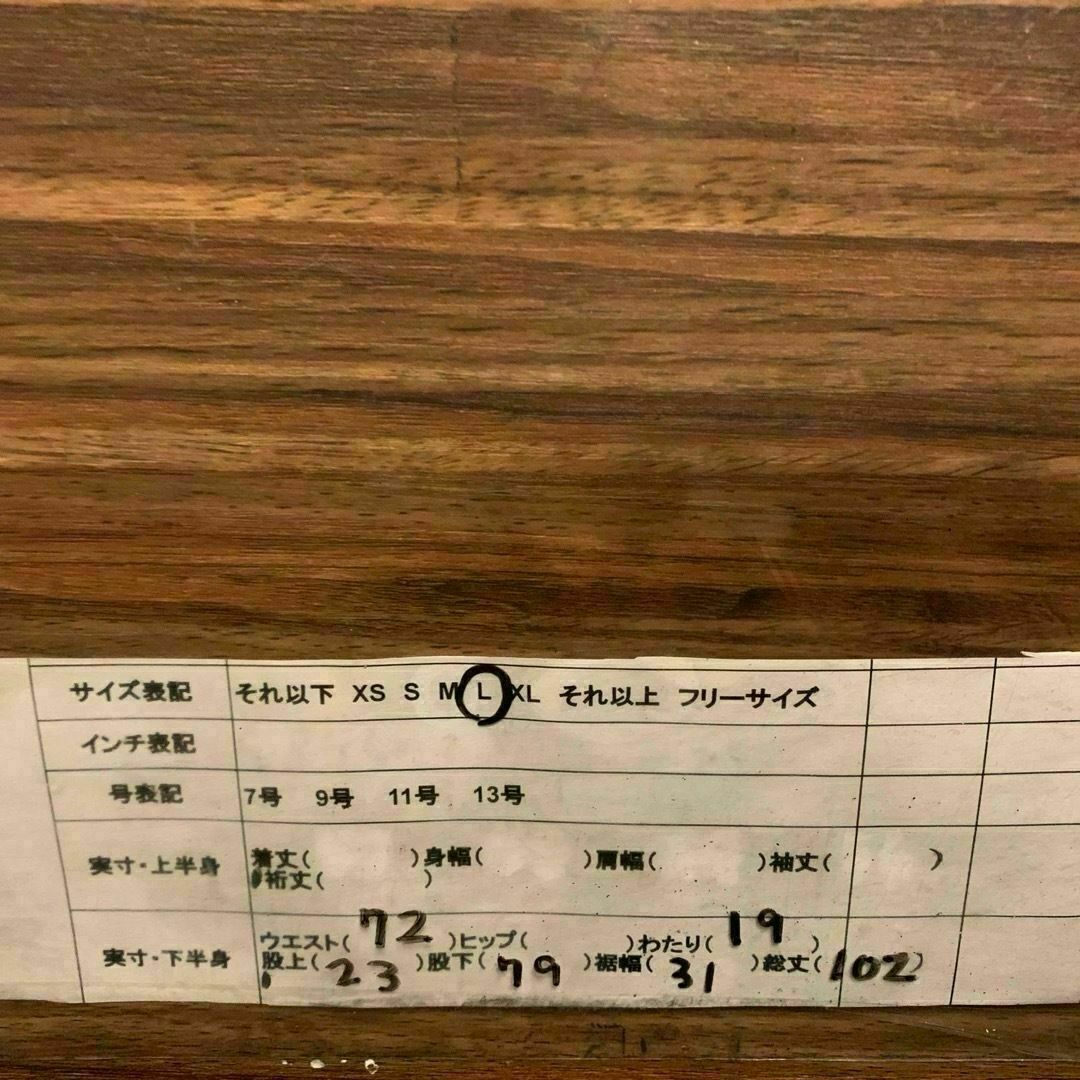 サイズ表記 それ以下 XS S M L XL それ以上 フリーサイズ
インチ表記
号表記 7号 9号 11号 13号
実寸・上半身 着丈( )身幅( )肩幅( )袖丈( )
裄丈( )
実寸・下半身 ウエスト( 72 )ヒップ( )わたり( 19 )
股上( 23 )股下( 79 )裾幅( 31 )総丈( 102 )